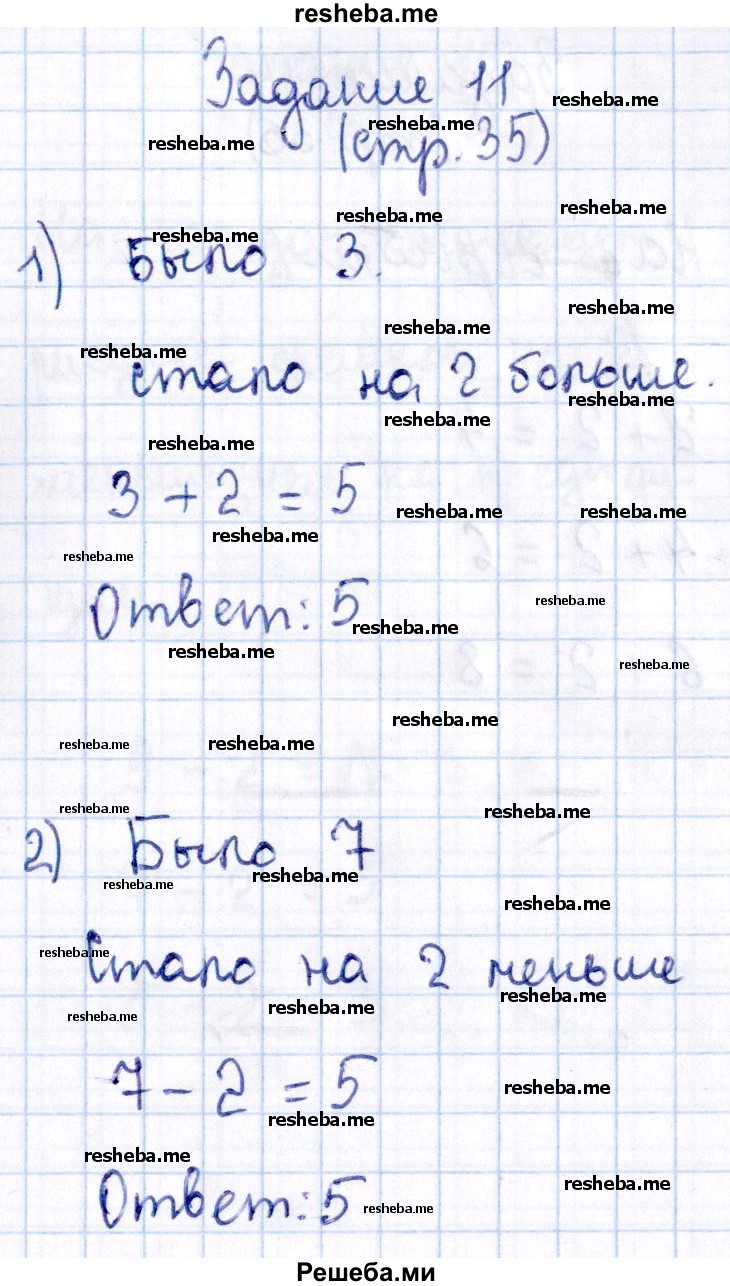 resheba.me
Задание 11
resheba.me
resheba.me
resheba.me
(стр. 35)
resheba.me
resheba.me
resheba.me
1) Было 3.
resheba.me
resheba.me
resheba.me
стало на 2 больше.
resheba.me
resheba.me
resheba.me
3 + 2 = 5
resheba.me
resheba.me
resheba.me
resheba.me
resheba.me
Ответ: 5
resheba.me
resheba.me
resheba.me
resheba.me
resheba.me
resheba.me
resheba.me
resheba.me
2) Было 7
resheba.me
resheba.me
resheba.me
resheba.me
Стало на 2 меньше
resheba.me
resheba.me
resheba.me
7 - 2 = 5
resheba.me
resheba.me
resheba.me
resheba.me
Ответ: 5
resheba.me
Решеба.ми